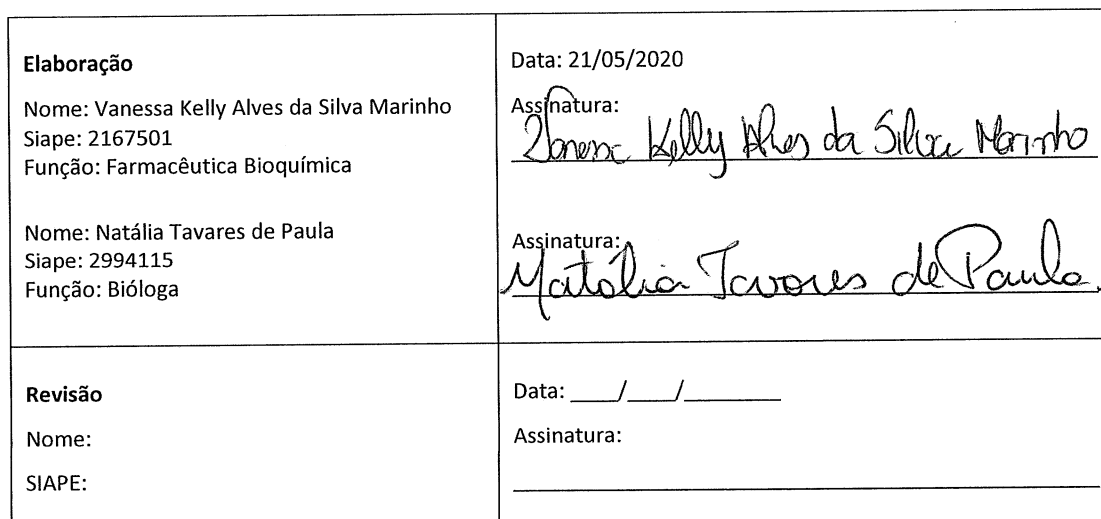 Elaboração
Nome: Vanessa Kelly Alves da Silva Marinho
Siape: 2167501
Função: Farmacêutica Bioquímica
Nome: Natália Tavares de Paula
Siape: 2994115
Função: Bióloga
Data: 21/05/2020
Assinatura:
Vanessa Kelly Alves da Silva Marinho
Assinatura:
Natália Tavares de Paula.
Revisão
Nome:
SIAPE:
Data: ____/____/________
Assinatura: